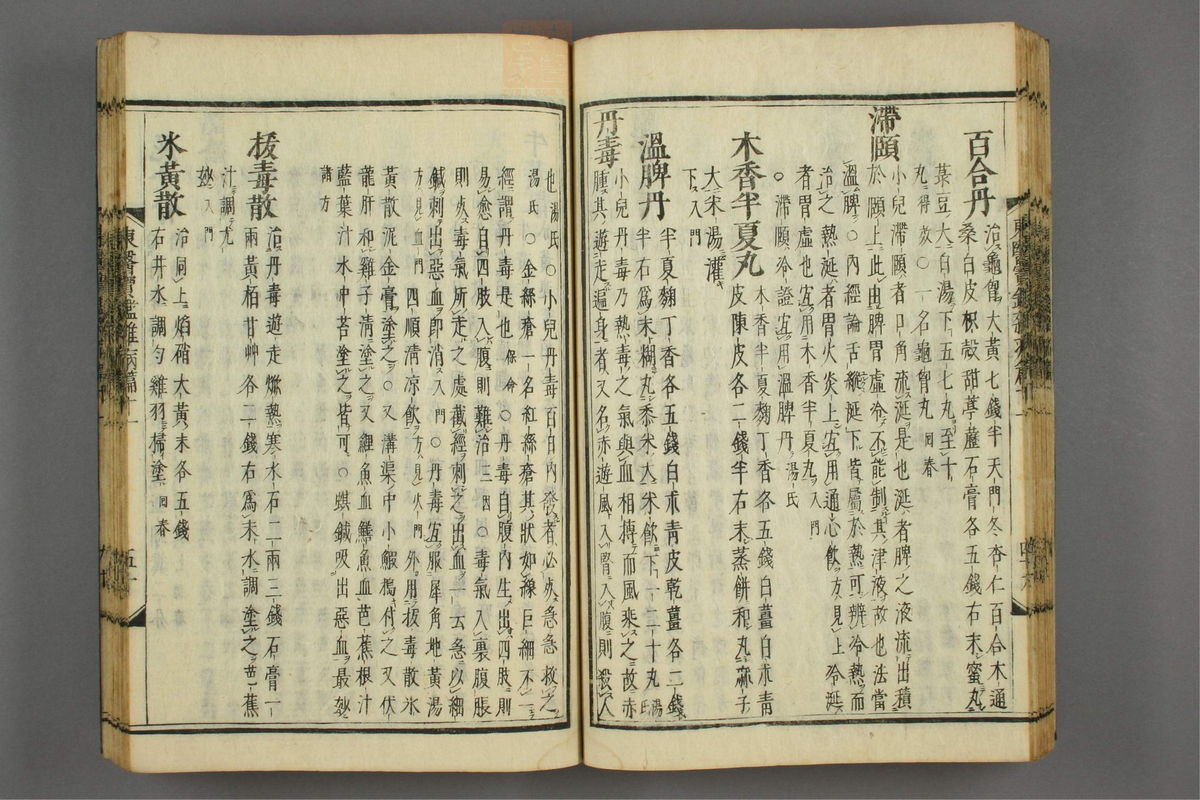 百合丹 治龜胷大黃七錢半天門冬杏仁百合木通
桑白皮枳殼甜葶藶石膏各五錢右末蜜丸
菉豆大白湯下五七丸至十
丸得效○一名龜胷丸 回春
滯頤 小兒滯頤者口角流涎是也涎者脾之液流出積
於頤上此由脾胃虛冷不能制其津液故也法當
溫脾○內經論舌縱涎下皆屬於熱可辨冷熱而
治之熱涎者胃火炎上宜用通心飮方見上冷涎
者胃虛也宜用木香半夏丸 入門
○滯頤冷證宜用溫脾丹 湯氏
木香半夏丸 木香半夏麴丁香各五錢白薑白朮青
皮陳皮各二錢半右末蒸餅和丸麻子
大米湯灌
下 入門
溫脾丹 半夏麴丁香各五錢白朮青皮乾薑各二錢
半右爲末糊丸黍米大米飮下一二十丸 湯氏
丹毒 小兒丹毒乃熱毒之氣與血相搏而風乘之故赤
腫其遊走遍身者又名赤遊風入腎入腹則殺人
也 湯氏○小兒丹毒百日內發者必死急急救之
湯氏○金絲瘡一名紅絲瘡其狀如線巨細不一
經謂丹毒是也 保命○丹毒自腹內生出四肢則
易愈自四肢入腹則難治 三因○毒氣入裏腹脹
則死毒氣所走之處截經刺之出血一云急以細
鍼刺出惡血卽消 入門○丹毒宜服犀角地黃湯
方見血門四順淸凉飮方見火門外用拔毒散氷
黃散泥金膏塗之○又溝渠中小鰕搗付之又伏
龍肝和雞子淸塗之又鯉魚血鱔魚血芭蕉根汁
藍葉汁水中苔塗之皆可○蜞鍼吸出惡血最妙
諸方
拔毒散 治丹毒遊走焮熱寒水石二兩三錢石膏一
兩黃栢甘艸各二錢右爲末水調塗之芭蕉
汁調尤
妙 入門
氷黃散 治同上焰硝大黃末各五錢
右井水調勻雞羽掃塗 回春
東醫寶鑑雜病篇十一
五十